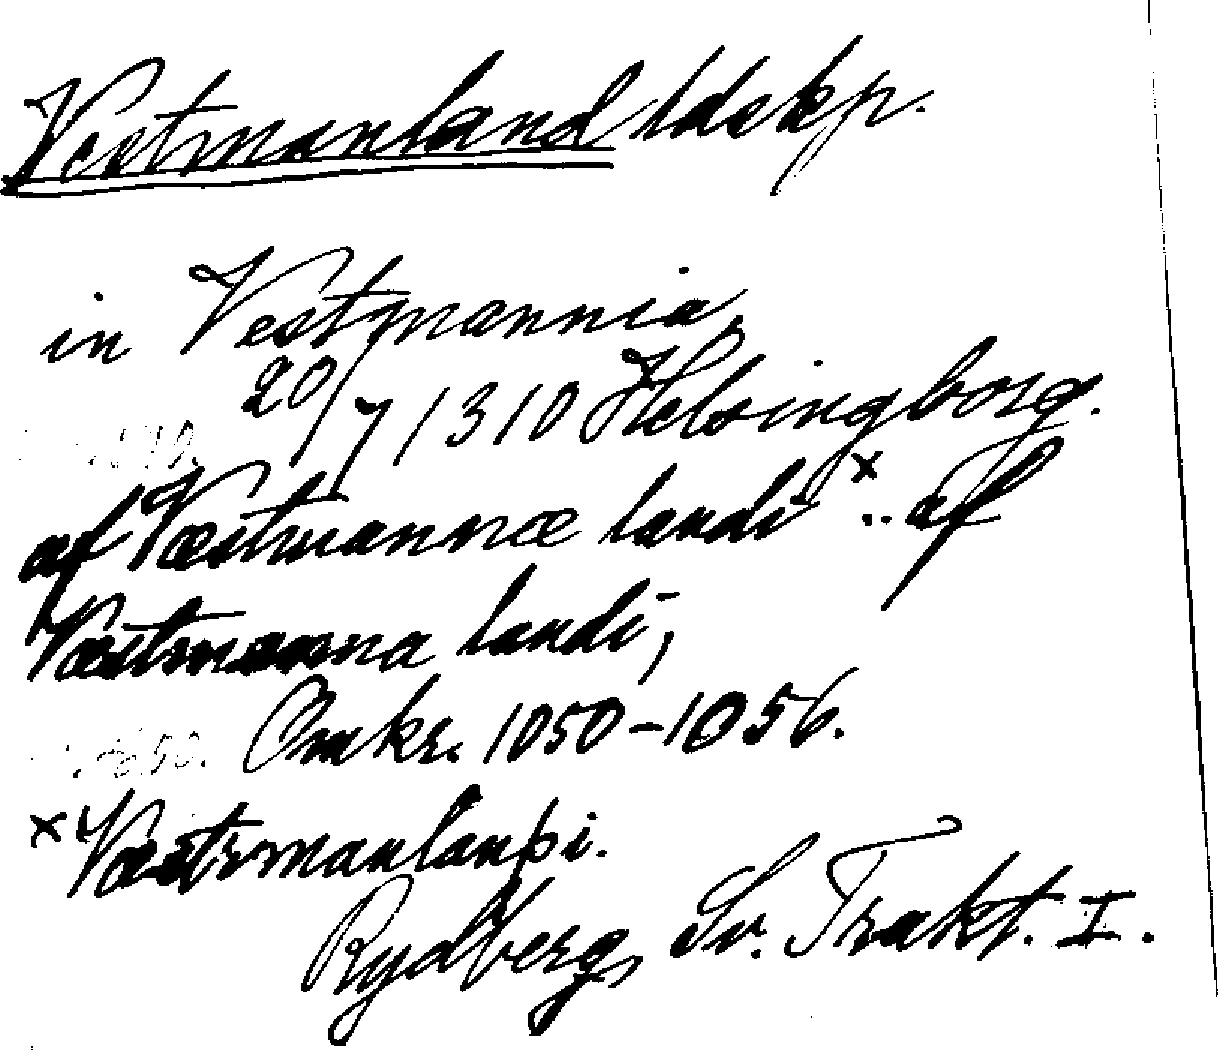 Vestmanland ldskp.
in Vestmannia,
20/7 1310 Helsingborg.
af Væstmannæ landi x .. af
Væstmanna landi,
Omkr. 1050-1056.
x Væstrmanlanþi.
Rydberg, Sv. Trakt. I.